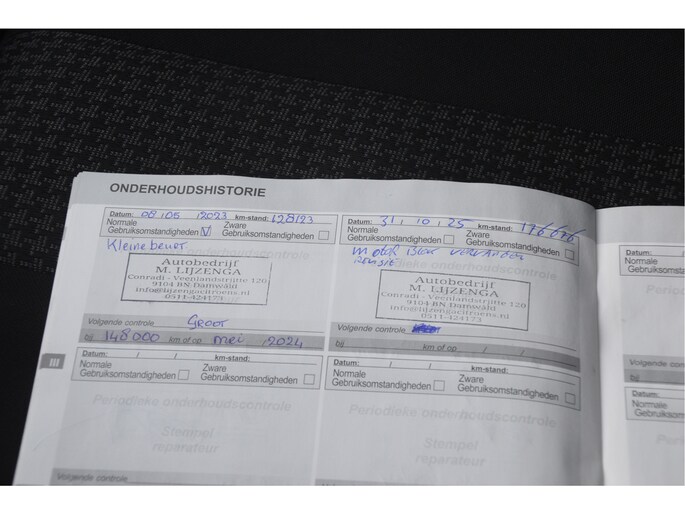 ONDERHOUDSHISTORIE
Datum: 08/05/2023 km-stand: 128123
Normale Gebruiksomstandigheden ☑ Zware Gebruiksomstandigheden ☐
Kleine beurt
Autobedrijf
M. LIJZENGA
Conradi - Veenlandstrjitte 120
9104 BN Damwald
info@lijzengacitroens.nl
0511-424173
Volgende controle Groot
bij 148000 km of op mei 2024
Datum: 31/10/25 km-stand: 176
Normale Gebruiksomstandigheden ☐ Zware Gebruiksomstandigheden ☐
motor Blok VERVANGEN
REVISIE
Autobedrijf
M. LIJZENGA
Conradi - Veenlandstrjitte 120
9104 BN Damwald
info@lijzengacitroens.nl
0511-424173
Volgende controle
bij km of op / /
III
Datum: / / km-stand:
Normale Gebruiksomstandigheden ☐ Zware Gebruiksomstandigheden ☐
Periodieke onderhoudscontrole
Stempel
reparateur
Volgende controle
Datum: / / km-stand:
Normale Gebruiksomstandigheden ☐ Zware Gebruiksomstandigheden ☐
Periodieke onderhoudscontrole
Stempel
reparateur
Volgende controle
Datum:
Normale
Gebruiksomst
Periodi
Volgende con
bij
Datum:
Normale
Gebruiksom